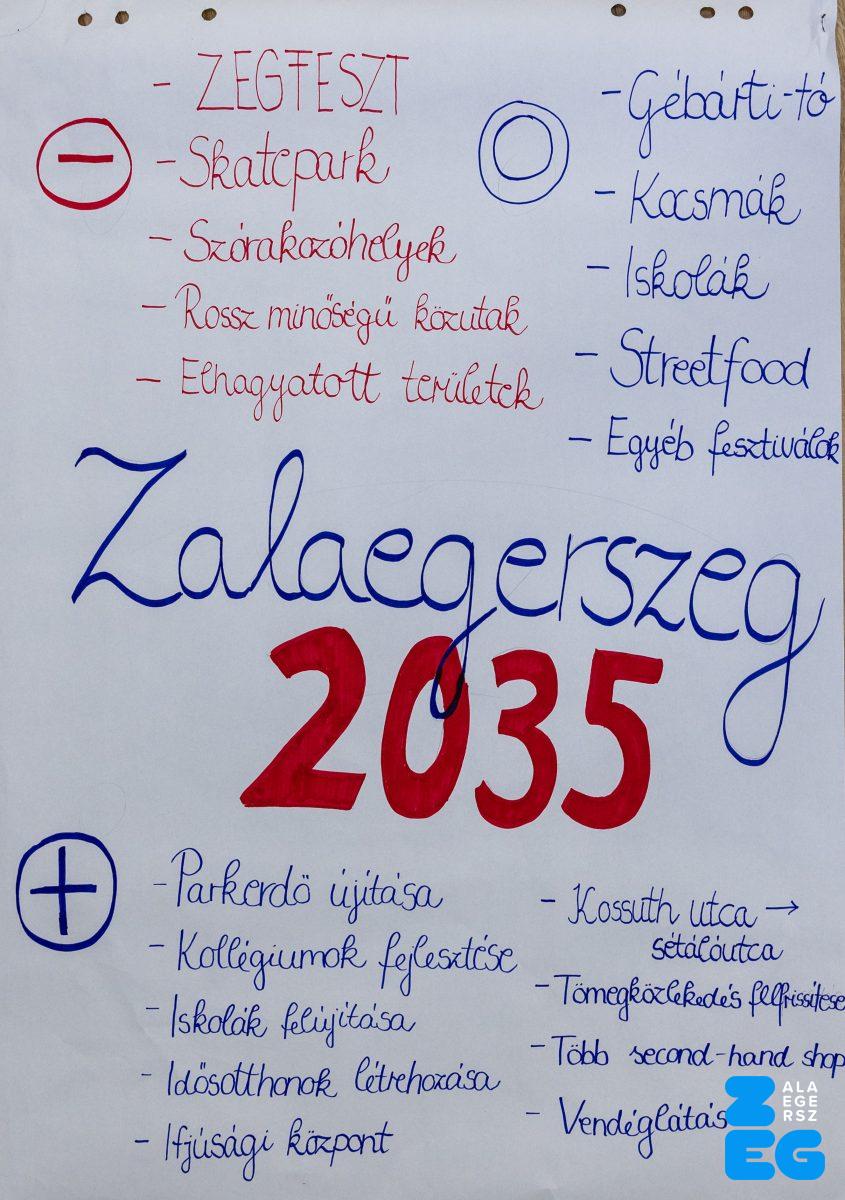 - ZEGFESZT
- Skatepark
- Szórakozóhelyek
- Rossz minőségű közutak
- Elhagyatott területek
- Gébárti-tó
- Kocsmák
- Iskolák
- Streetfood
- Egyéb fesztiválok
Zalaegerszeg
2035
- Parkerdő újítása
- Kollégiumok fejlesztése
- Iskolák felújítása
- Idősotthonok létrehozása
- Ifjúsági központ
- Kossuth utca →
sétálóutca
- Tömegközlekedés felfrissítése
- Több second-hand shop
- Vendéglátás
Z ALA
EGE
RSZ
EG